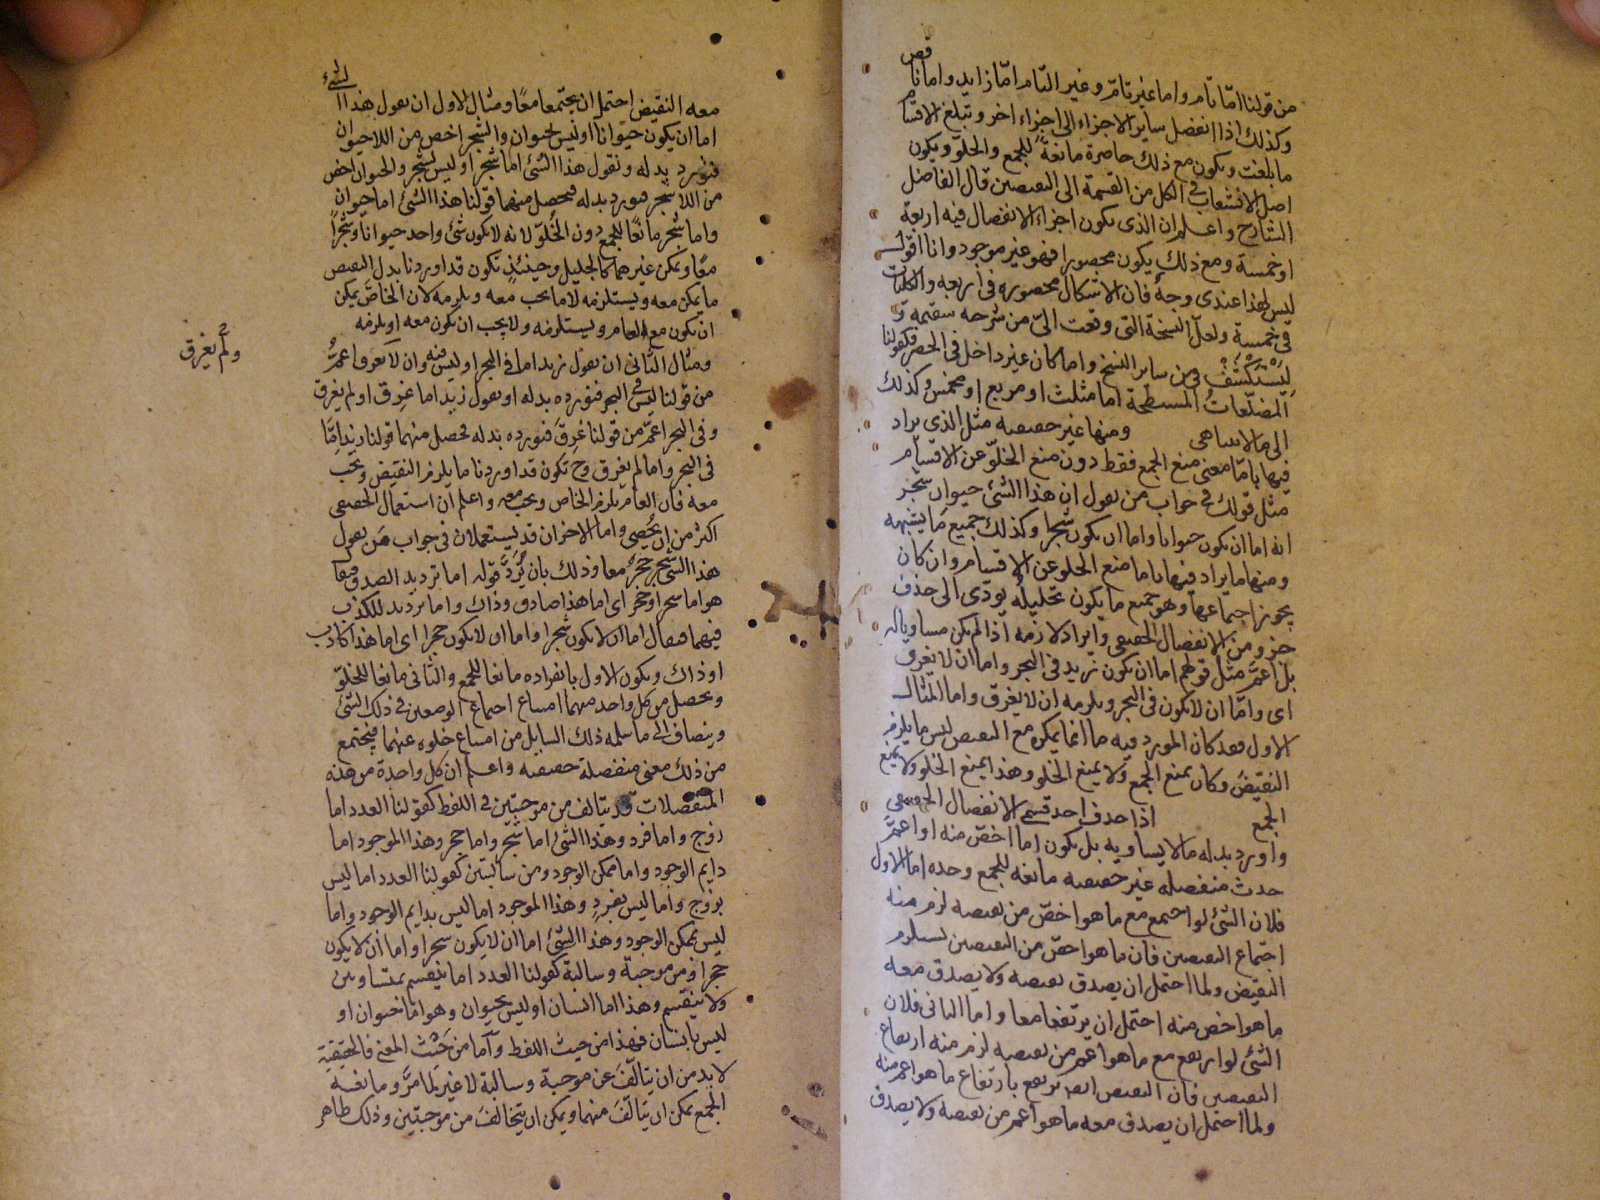 من قولنا اما تام واما غير تام وغير التام اما زايد واما ناقص
وكذلك اذا انفصل ساير الاجزاء الى اجزاء اخر وتبلغ الاقسام
ما بلغت ويكون مع ذلك حاصرة مانعة للجمع والخلو ويكون
اصل الانشعاب في الكل من القسمة الى النقيضين قال الفاضل
الشارح واعلم ان الذى يكون اجزاء الانفصال فيه اربعة
او خمسة ومع ذلك يكون محصورا فهو غير موجود وانا اقول
ليس لهذا عندى وجه فان الاشكال محصورة في اربعة والكليات
في خمسة ولعل النسخة التى وقعت الىّ من شرحه سقيمة و
ليستكشف من ساير النسخ واما كان غير داخل في الحصر فكقولنا
المضلعات المسطحة اما مثلث او مربع او مخمس وكذلك
الى ما لا يتناهى ومنها غير حقيقيه مثل الذى يراد
فيها باما معنى منع الجمع فقط دون منع الخلو عن الاقسام
مثل قولك في جواب من يقول ان هذا الشئ حيوان شجر
انه اما ان يكون حيوانا واما ان يكون شجرا وكذلك جميع ما يشبهه
ومنها ما يراد فيها باما منع الخلو عن الاقسام وان كان
يجوز اجتماعها وهو جميع ما يكون تحليله يودى الى حذف
جزو من الانفصال الحقيقى وايراد لازمه اذا لم يكن مساويا له
بل اعمّ مثل قولهم اما ان يكون زيد في البحر واما ان لا يغرق
اى واما ان لا يكون في البحر ويلزمه ان لا يغرق واما المثال
الاول فقد كان المورد فيه ما انما يمكن مع النقيض ليس ما يلزم
النقيض وكان يمنع الجمع ولا يمنع الخلو وهذا يمنع الخلو ولا يمنع
الجمع اذا حذف احد قسمى الانفصال الحقيقى
واورد بدله ما لا يساويه بل يكون اما اخص منه او اعمّ
حدث منفصله غير حقيقيه مانعه للجمع وحده اما الاول
فلان الشئ لو اجتمع مع ما هو اخصّ من نقيضه لزم منه
اجتماع النقيضين فان ما هو اخصّ من النقيضين يستلزم
النقيض ولما احتمل ان يصدق نقيضه ولا يصدق معه
ما هو اخص منه احتمل ان يرتفعا معا واما الثانى فلان
الشئ لو ارتفع مع ما هو اعم من نقيضه لزم منه ارتفاع
النقيضين فان النقيض ايضا يرتفع بارتفاع ما هو اعم منه
ولما احتمل ان يصدق معه ما هو اعم من نقيضه ولا يصدق
معه النقيض احتمل ان يجتمعا معا ومثال الاول ان نقول هذا الشئ
اما ان يكون حيوانا او ليس بحيوان والشجر اخص من اللاحيوان
فنورد بدله ونقول هذا الشئ اما شجر او ليس بشجر والحيوان اخص
من اللاشجر فنورد بدله فحصل منهما قولنا هذا الشئ اما حيوان
واما شجر مانعا للجمع دون الخلوّ لانه لا يكون شئ واحد حيوانا وشجرا
معا ويمكن غيرهما كالجبل وحينئذ نكون قد اوردنا بدل النقيض
ما يمكن معه ويستلزمه لا ما يجب معه ويلزمه لان الخاصّ يمكن
ان يكون مع العام ويستلزمه ولا يجب ان يكون معه او يلزمه
ومثال الثانى ان نقول زيد اما في البحر او ليس فيه وان لا يغرق اعمّ
من قولنا ليس في البحر فنورده بدله او نقول زيد اما غرق او لم يغرق
وفى البحر اعمّ من قولنا غرق فنورده بدله فحصل منهما قولنا زيد اما
في البحر واما لم يغرق وح نكون قد اوردنا ما يلزم النقيض ويجب
معه فان العام يلزم الخاص ويجب معه واعلم ان استعمال الحقيقى
اكثر من ان يحصى واما الاخران قد يستعملان فى جواب من يقول
هذا الشئ شجر حجر معا وذلك بان يُرَدّ قوله اما ترديد الصدق فيهما
هو اما شجر او حجر اى اما هذا صادق وذاك واما ترديد للكذب
فيهما فيقال اما ان لا يكون شجرا واما ان لا يكون حجرا اى اما هذا كاذب
او ذاك ويكون الاول بانفراده مانعا للجمع والثانى مانعا للخلوّ
ويحصل من كل واحد منهما امتناع اجتماع الوصفين في ذلك الشئ
وينضاف الى ما سلمه ذلك السايل من امتناع خلوه عنهما فيجتمع
من ذلك معنى منفصلة حقيقيه واعلم ان كل واحدة من هذه
المنفصلات قد يتالف من موجبتين في اللفظ كقولنا العدد اما
زوج واما فرد وهذا الشئ اما شجر واما حجر وهذا الموجود اما
دايم الوجود واما ممكن الوجود ومن سالبتين كقولنا العدد اما ليس
بزوج واما ليس بفرد وهذا الموجود اما ليس بدايم الوجود واما
ليس بممكن الوجود وهذا الشئ اما ان لا يكون شجرا واما ان لا يكون
حجرا او من موجبة وسالبة كقولنا العدد اما ينقسم بمتساويين
ولا ينقسم وهذا اما انسان او ليس بحيوان وهو اما حيوان او
ليس بانسان فهذا من حيث اللفظ واما من حيث المعنى فالحقيقية
لا بد من ان يتالف عن موجبة وسالبة لا غير لما مرّ ومانعة
الجمع يمكن ان يتالف منهما ويمكن ان يتالف من موجبتين وذلك ظاهر
ولم يغرق